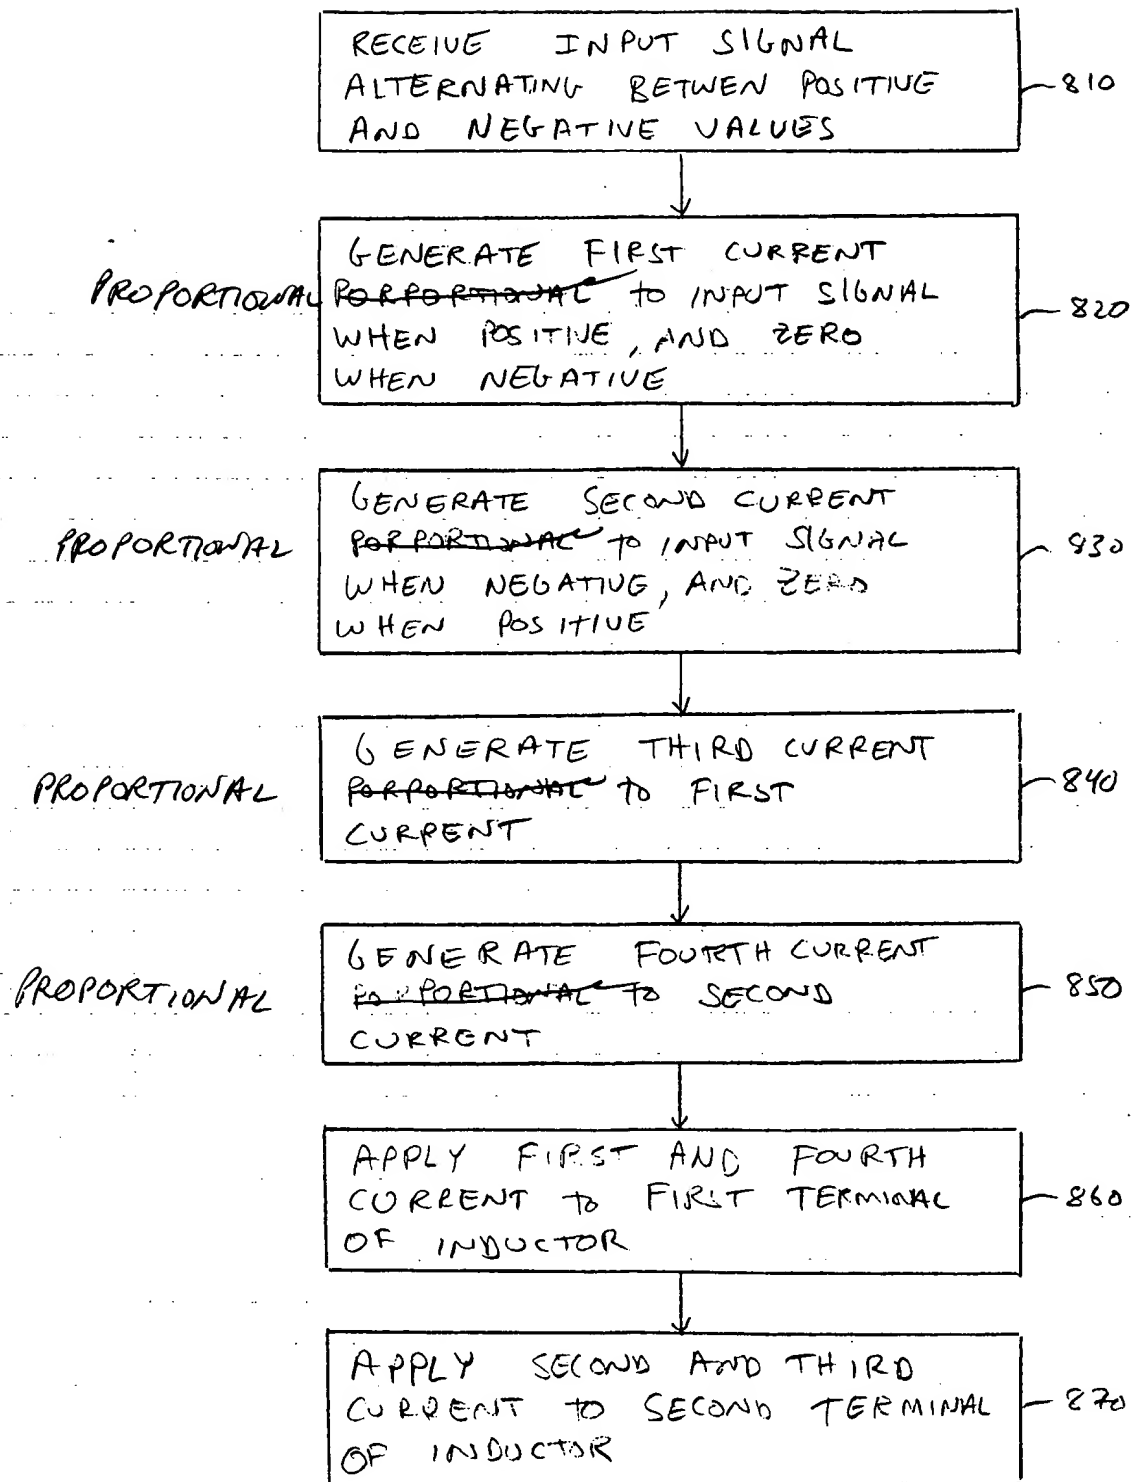 RECEIVE INPUT SIGNAL
ALTERNATING BETWEN POSITIVE
AND NEGATIVE VALUES
810
GENERATE FIRST CURRENT
PROPORTIONAL PORPORTIONAL TO INPUT SIGNAL
WHEN POSITIVE, AND ZERO
WHEN NEGATIVE
820
GENERATE SECOND CURRENT
PROPORTIONAL PORPORTIONAL TO INPUT SIGNAL
WHEN NEGATIVE, AND ZERO
WHEN POSITIVE
830
GENERATE THIRD CURRENT
PROPORTIONAL PORPORTIONAL TO FIRST
CURRENT
840
GENERATE FOURTH CURRENT
PROPORTIONAL PORPORTIONAL TO SECOND
CURRENT
850
APPLY FIRST AND FOURTH
CURRENT TO FIRST TERMINAL
OF INDUCTOR
860
APPLY SECOND AND THIRD
CURRENT TO SECOND TERMINAL
OF INDUCTOR
870